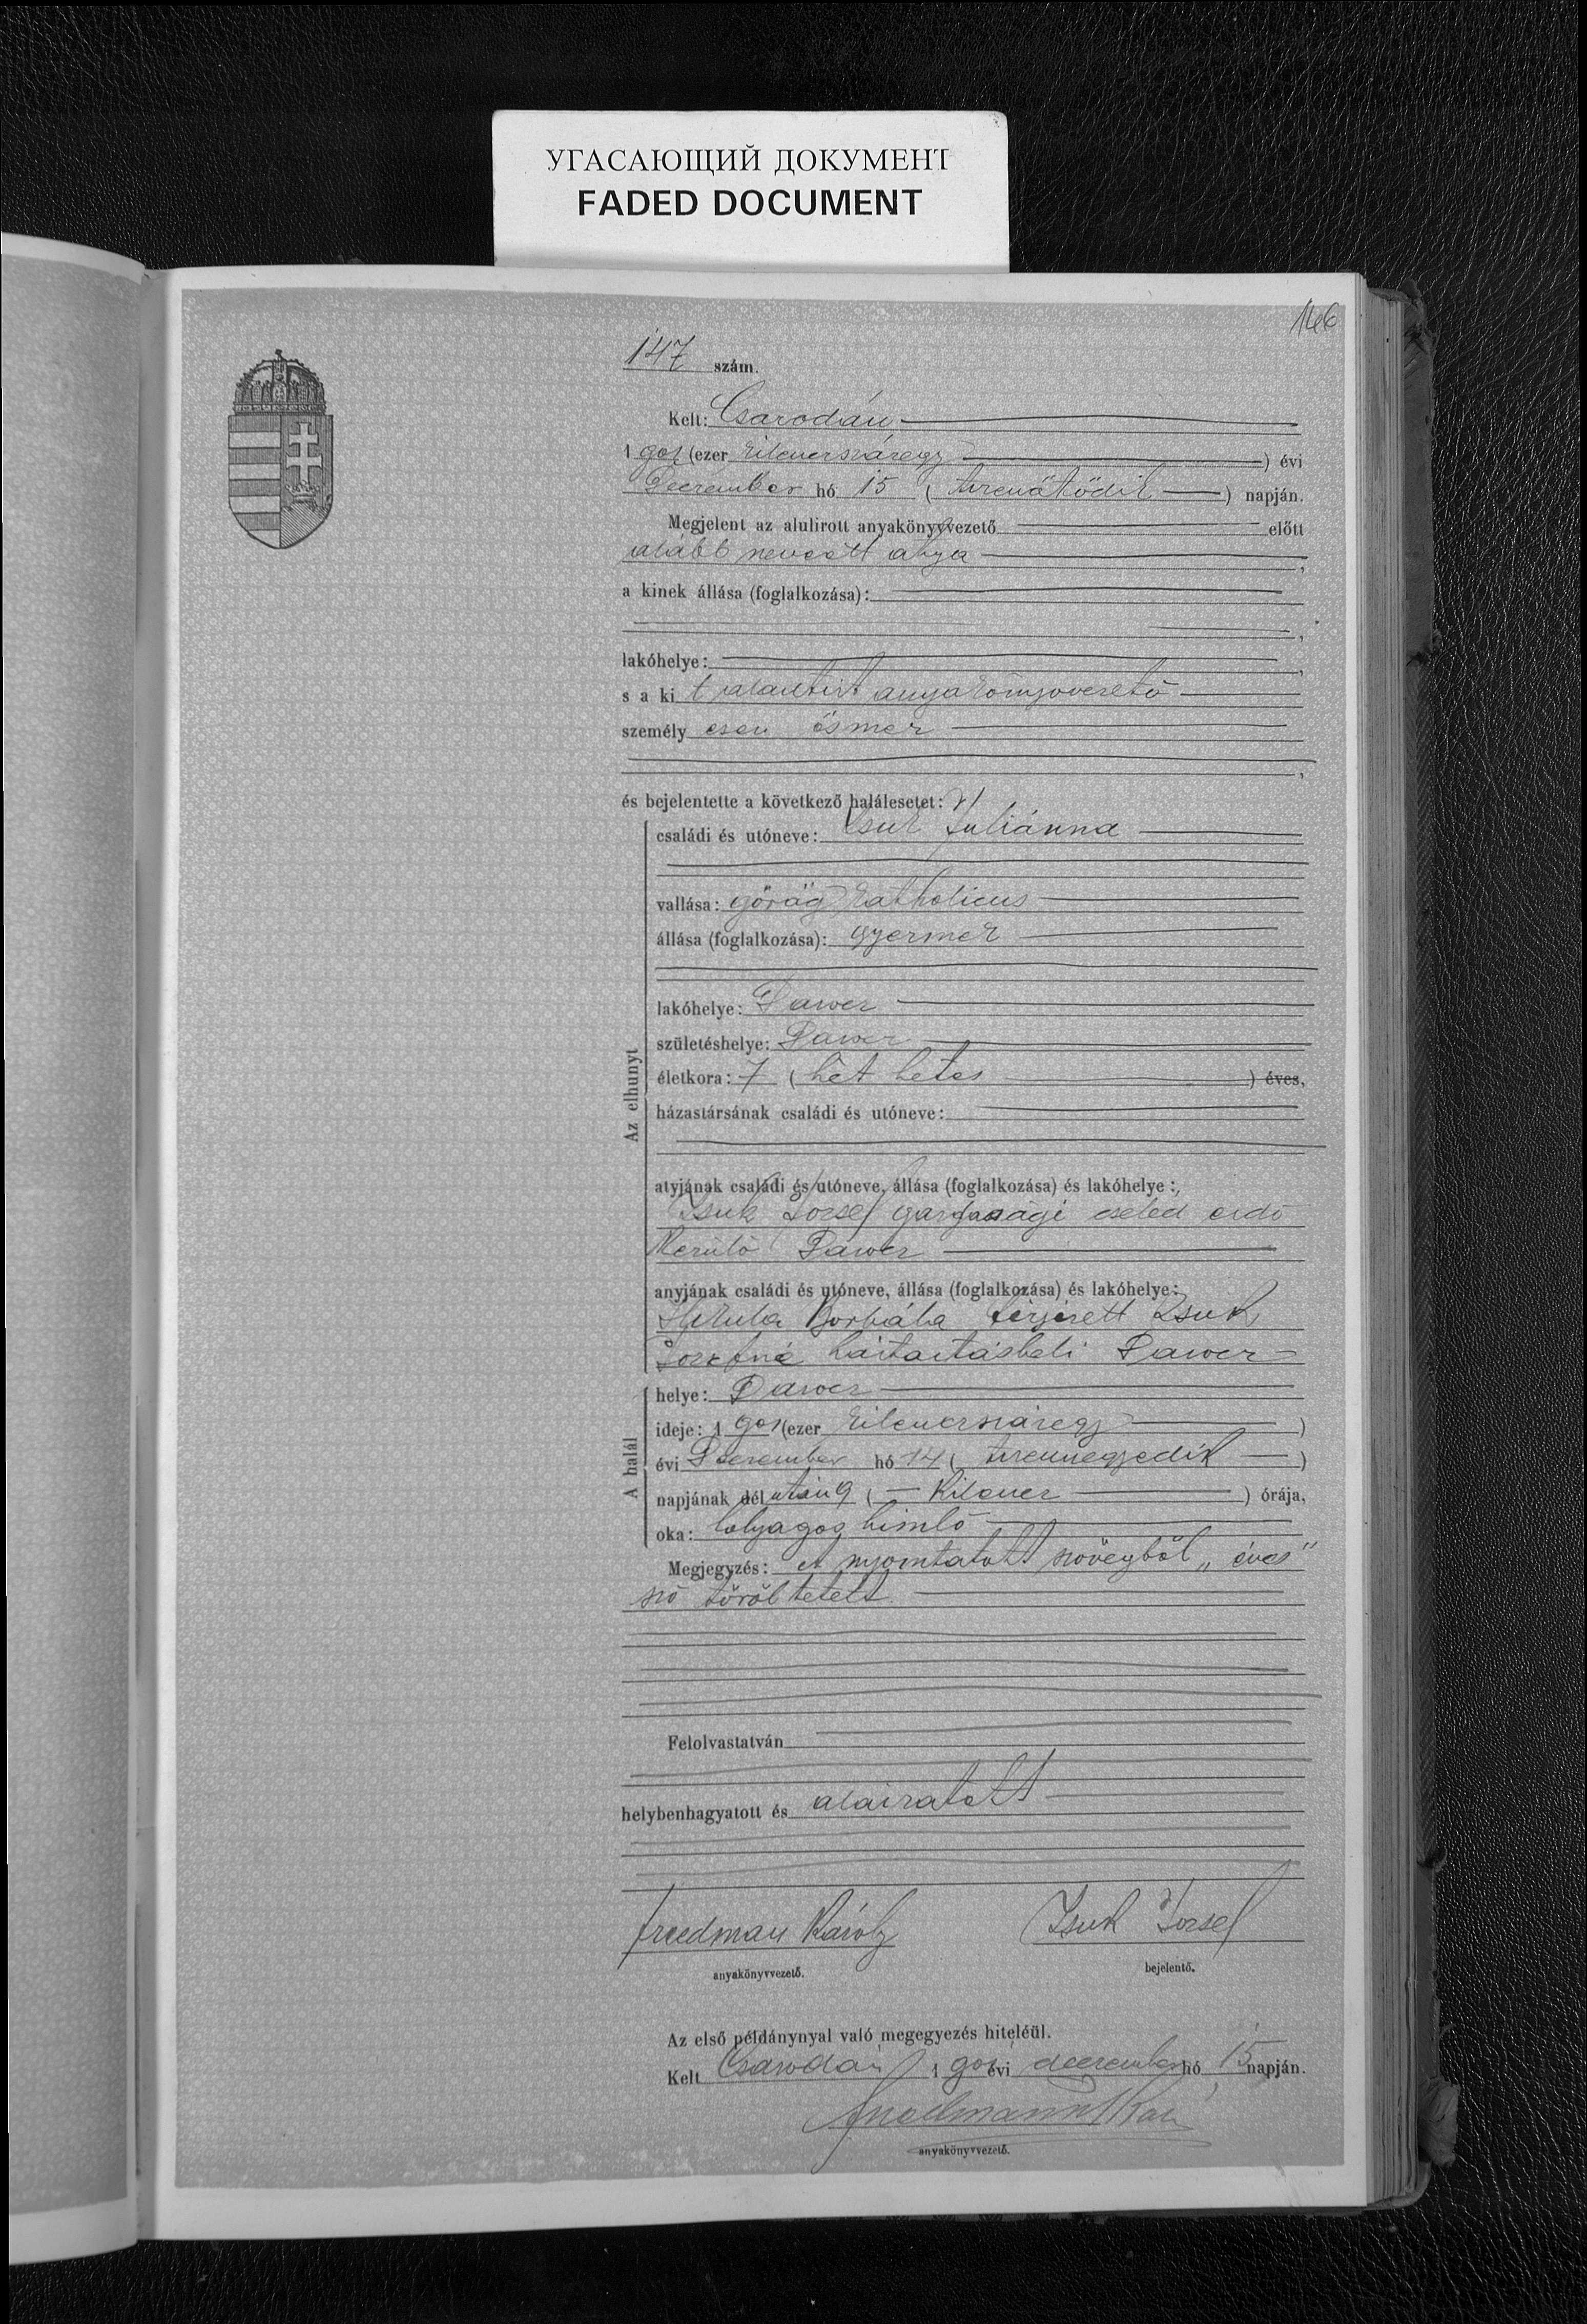 УГАСАЮЩИЙ ДОКУМЕНТ
FADED DOCUMENT
146
147 szám.
Kelt: Csarodán
1 901 (ezer kilencszázegy ) évi
December hó 15 ( tizenötödik ) napján.
Megjelent az alulirott anyakönyvvezető előtt
alább nevezett atyja ,
a kinek állása (foglalkozása):
,
lakóhelye: ,
s a ki t alantirt anyakönyvvezető
személyesen ösmer
,
és bejelentette a következő halálesetet:
családi és utóneve: Zsuk Juliánna
vallása: görög katholicus
állása (foglalkozása): gyermek
lakóhelye:
születéshelye:
Az elhunyt
életkora: 7 ( hét hetes ) éves,
házastársának családi és utóneve:
atyjának családi és utóneve, állása (foglalkozása) és lakóhelye:
Zsuk Jozsef gazdasági cseled erdő
kerülő
anyjának családi és utóneve, állása (foglalkozása) és lakóhelye:
Borbála férjezett Zsuk
Jozsefné háztartásbeli
A halál
helye:
ideje: 1 901 (ezer kilencszázegy )
évi December hó 14 ( tizennegyedik )
napjának délután 9 ( kilencz ) órája,
oka: hólyagos himlő
Megjegyzés: A nyomtatott szövegből „éves"
szó töröltetett
Felolvastatván
helybenhagyatott és aláiratott
Károly Zsuk Jozsef
anyakönyvvezető. bejelentő.
Az első példánynyal való megegyezés hiteléül.
Kelt Csarodán 1 901 évi december hó 15 napján.
anyakönyvvezető.